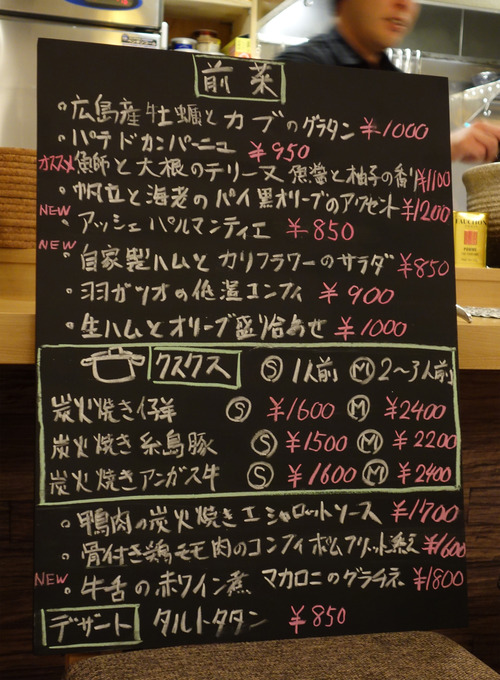 前菜
・広島産牡蠣とカブのグラタン ¥1000
・パテドカンパーニュ ¥950
オススメ ・魚師と大根のテリーヌ 魚醤と柚子の香り ¥1100
・帆立と海老のパイ黒オリーブのアクセント ¥1200
NEW ・アッシェパルマンティエ ¥850
NEW ・自家製ハムとカリフラワーのサラダ ¥850
・羽ガツオの低温コンフィ ¥900
・生ハムとオリーブ盛り合わせ ¥1000
クスクス Ⓢ1人前 Ⓜ2〜3人前
炭火焼き仔羊 Ⓢ ¥1600 Ⓜ ¥2400
炭火焼き糸島豚 Ⓢ ¥1500 Ⓜ ¥2200
炭火焼きアンガス牛 Ⓢ ¥1600 Ⓜ ¥2400
・鴨肉の炭火焼きエシャロットソース ¥1700
・骨付き鶏モモ肉のコンフィポムフリット添え ¥1600
NEW ・牛舌の赤ワイン煮 マカロニのグラチネ ¥1800
デザート タルトタタン ¥850